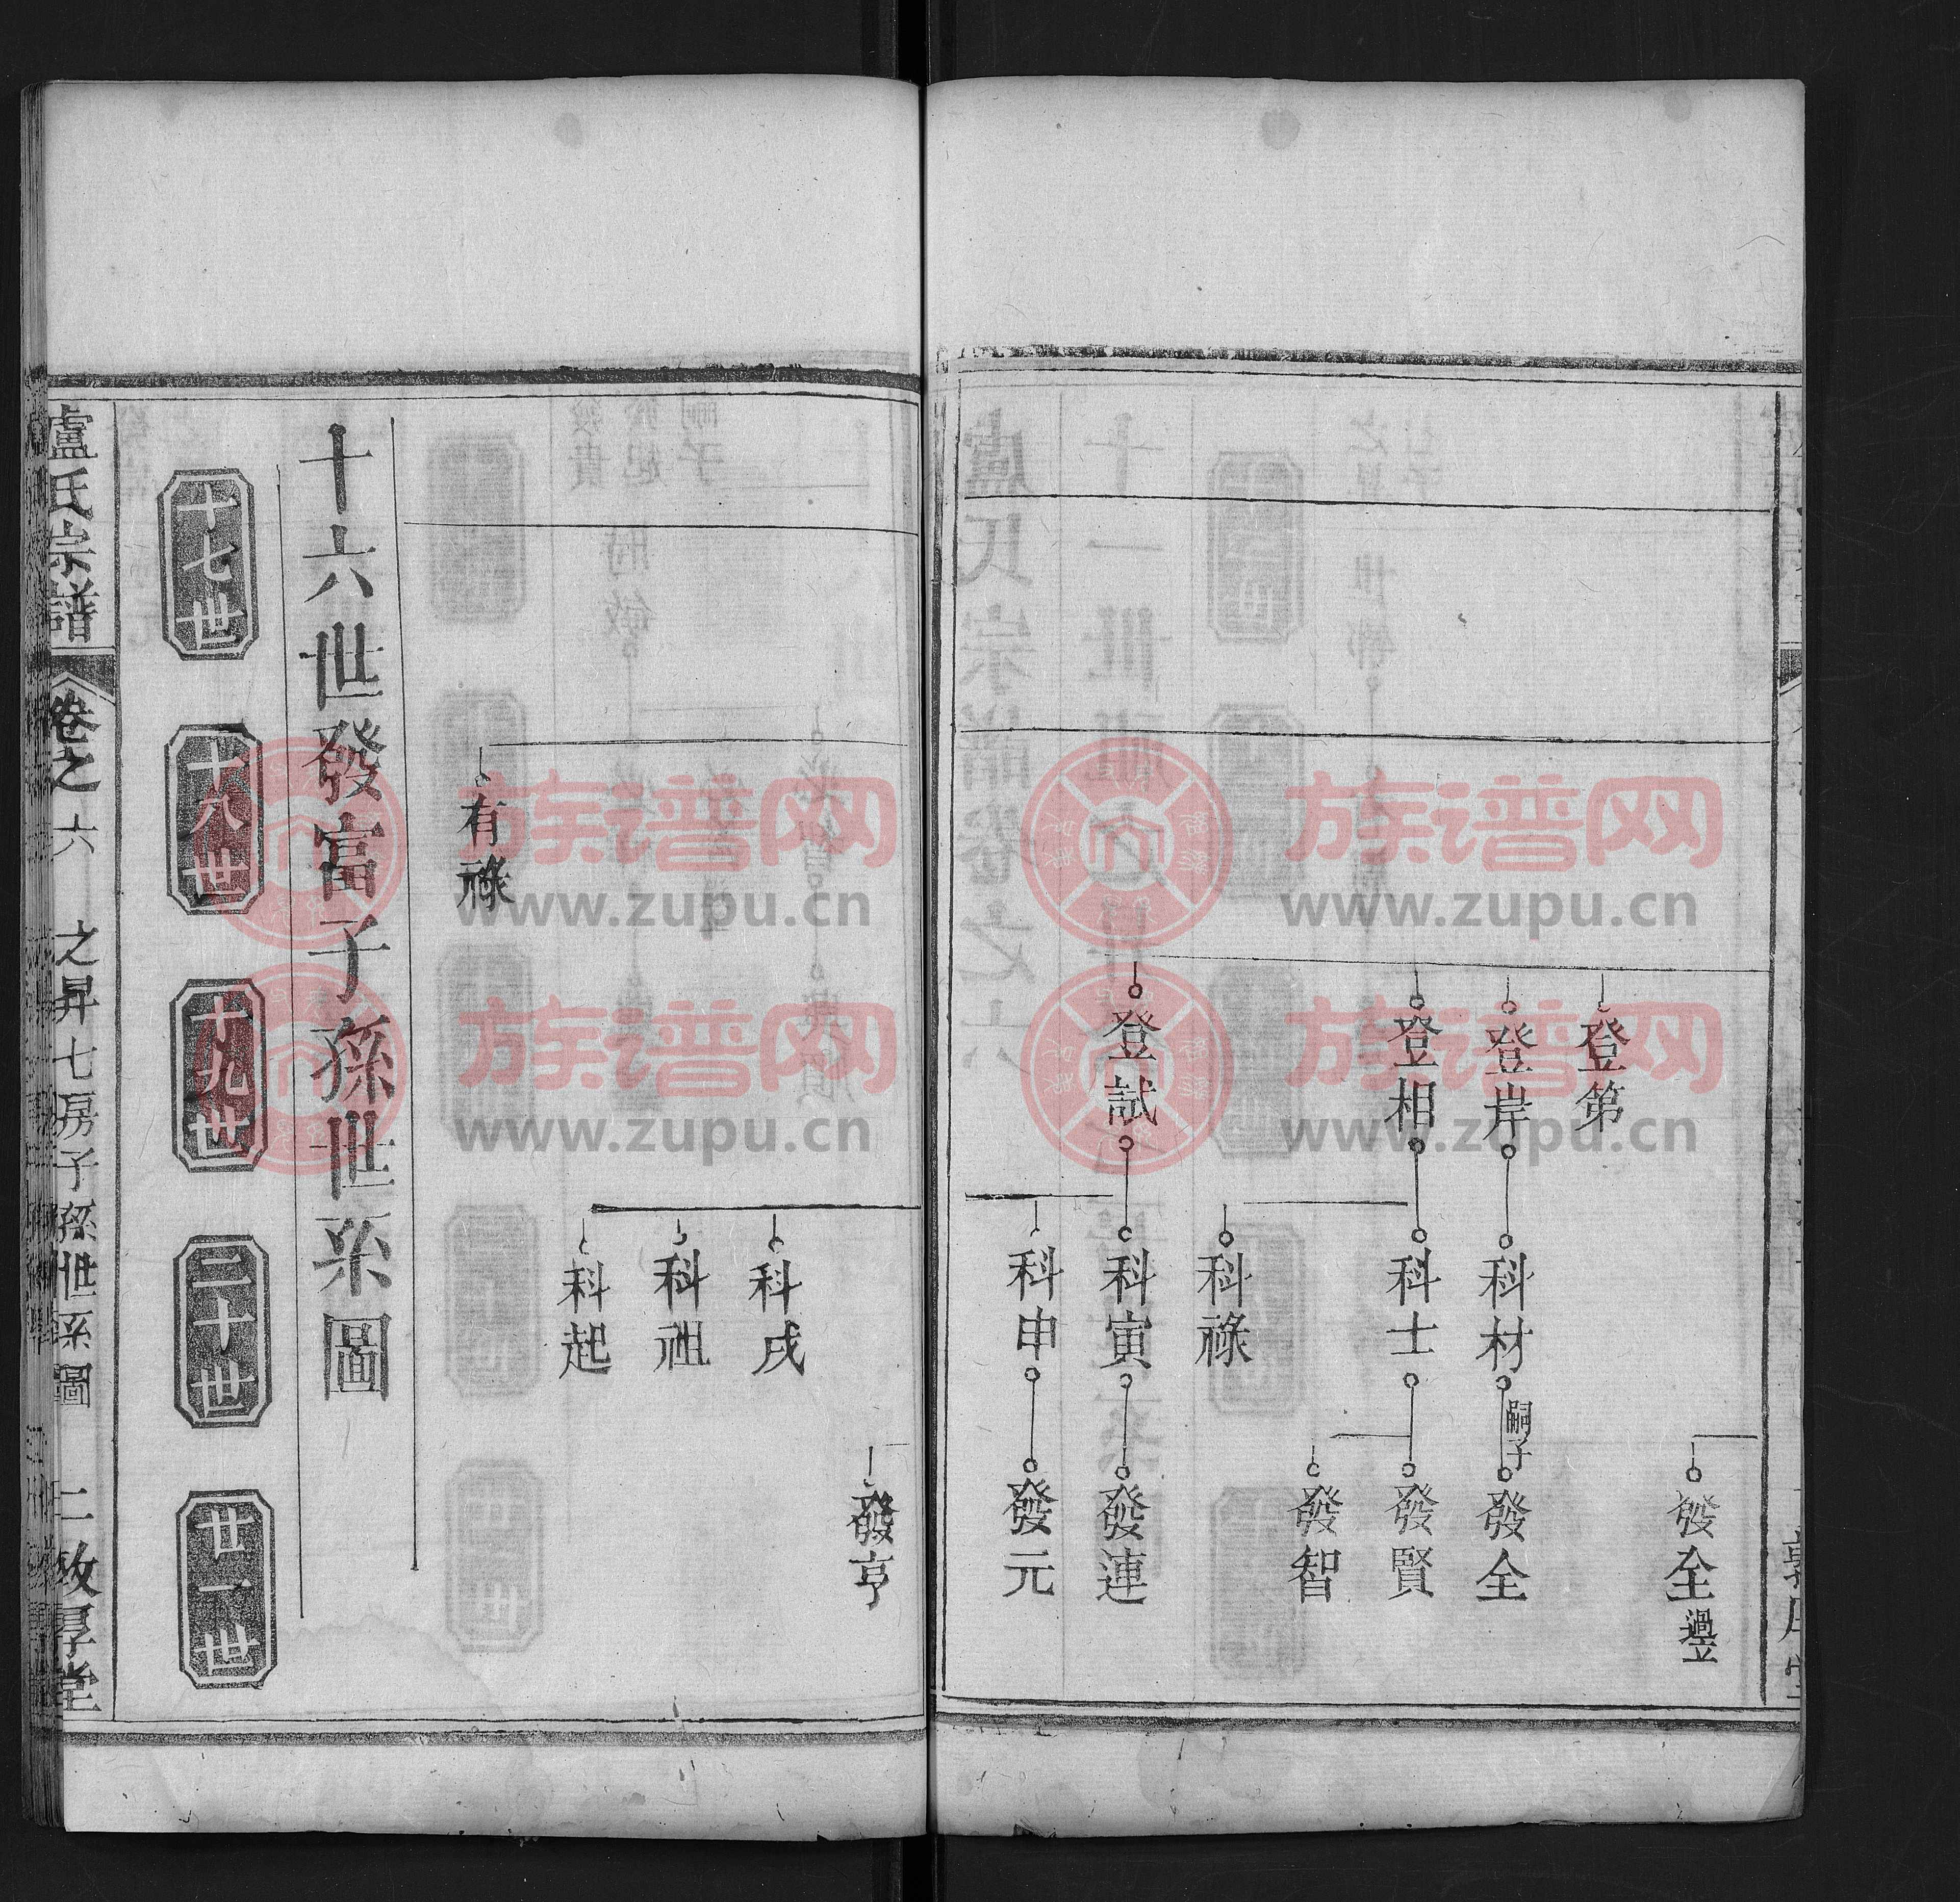 發全過立
登第
登岸 科材 嗣子 發全
登相 科士 發賢
發智
科祿
登試 科寅 發連
科申 發元
發亨
科戌
科祖
科起
有祿
十六世發富子孫世系圖
十七世 十八世 十九世 二十世 廿一世
盧氏宗譜 卷之六 之昇七房子孫世系圖 二 敦厚堂
族谱网
www.zupu.cn
族谱网
www.zupu.cn
族谱网
www.zupu.cn
族谱网
www.zupu.cn